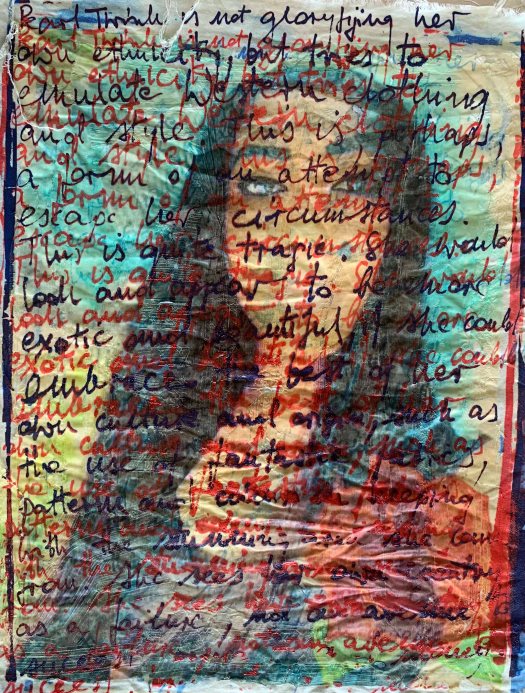 Pearl Thrink is not gloryfying her
own ethnicity, but tries to
emulate Western clothing
and style. This is, perhaps,
a form of an attempt to
escape her circumstances.
This is quite tragic. She would
look and appear to be more
exotic and beautiful if she could
embrace the best of her
own culture and origin, such as
the use of fantastic fabrics,
patterns and colours in keeping
with the stunning area she came
from. She sees her own country
as a failure, not an avenue to
success.